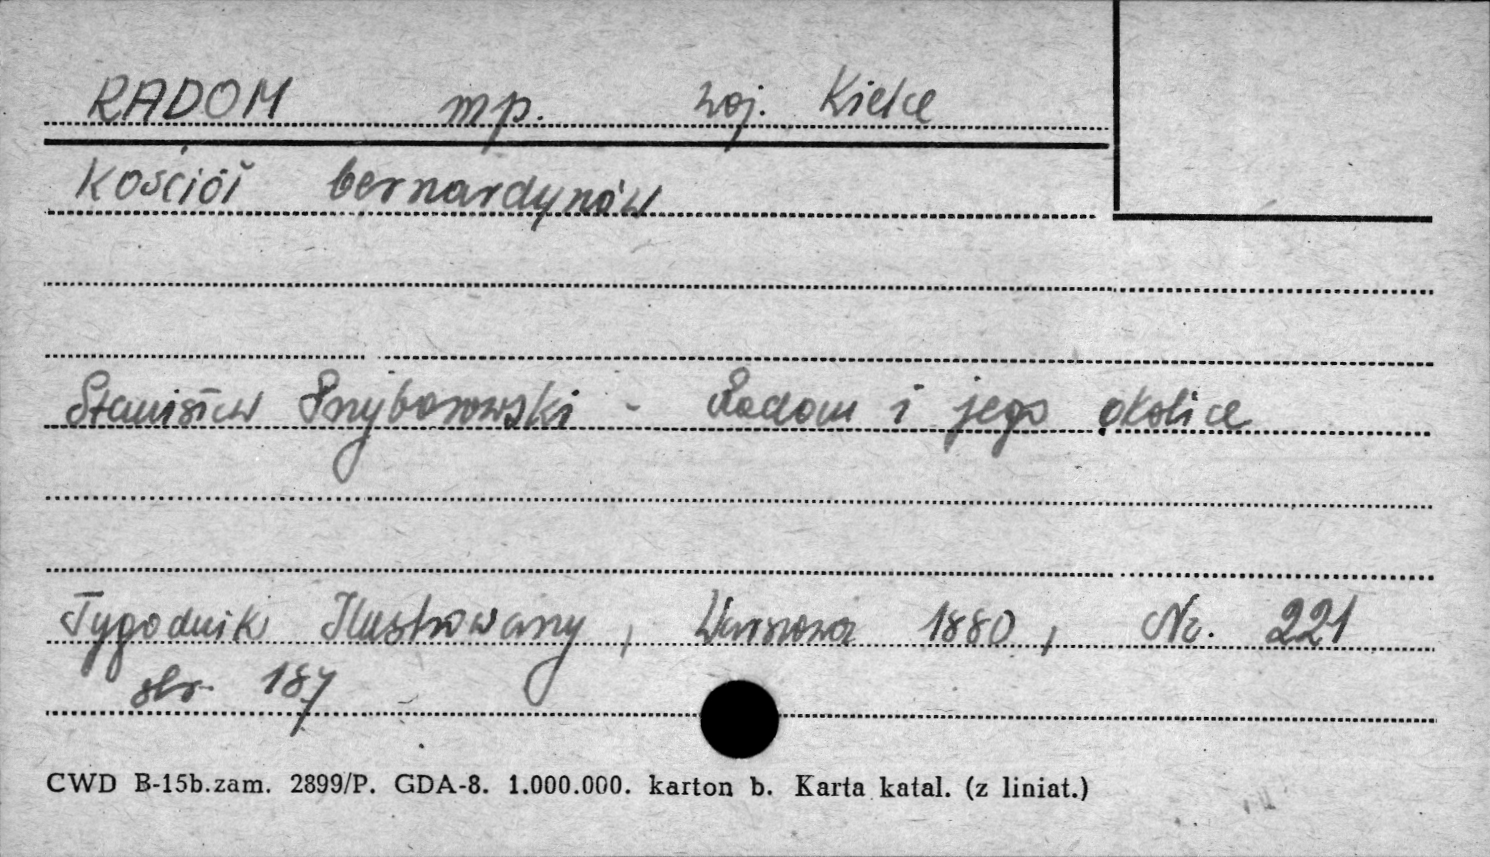 RADOM mp. woj. Kielce
Kościół bernardynów
Stanisław Przyborowski - Radom i jego okolice
Tygodnik Ilustrowany, Warszawa 1880, Nr. 221
str 187
CWD B-15b.zam. 2899/P. GDA-8. 1.000.000. karton b. Karta katal. (z liniat.)